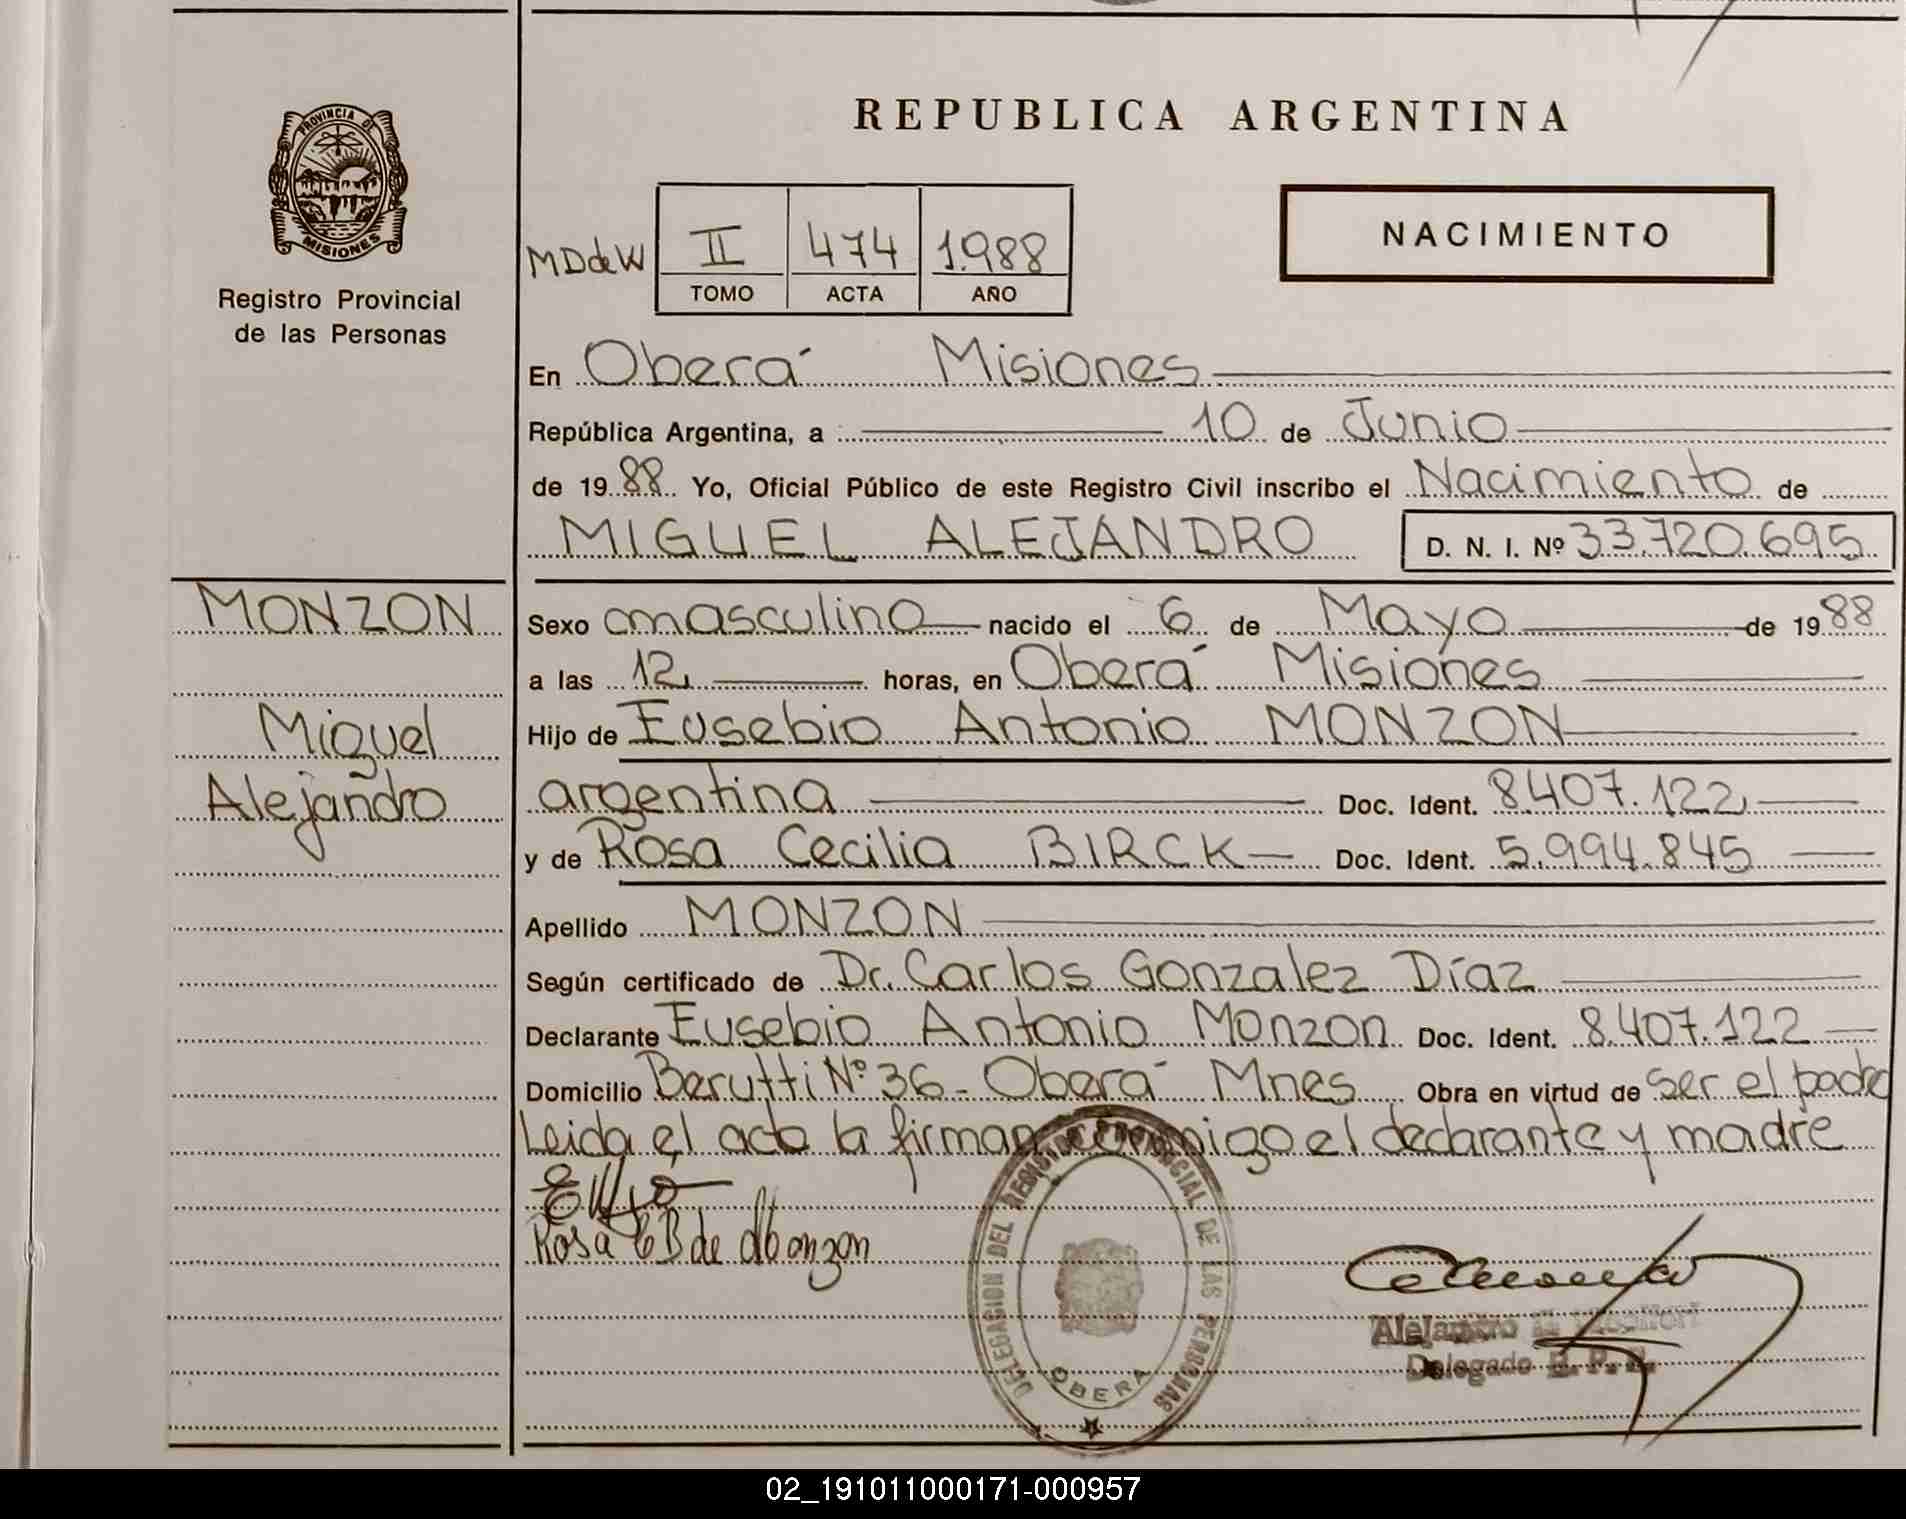 PROVINCIA DE
MISIONES
Registro Provincial
de las Personas
REPUBLICA ARGENTINA
NACIMIENTO
MDdeW II 474 1.988
TOMO ACTA AÑO
En Oberá Misiones
República Argentina, a 10 de Junio
de 1988 Yo, Oficial Público de este Registro Civil inscribo el Nacimiento de
MIGUEL ALEJANDRO D. N. I. Nº 33.720.695
MONZON
Miguel
Alejandro
Sexo masculino nacido el 6 de Mayo de 1988
a las 12 horas, en Oberá Misiones
Hijo de Eusebio Antonio MONZON
argentina Doc. Ident. 8.407.122
y de Rosa Cecilia BIRCK Doc. Ident. 5.994.845
Apellido MONZON
Según certificado de Dr. Carlos Gonzalez Díaz
Declarante Eusebio Antonio Monzon Doc. Ident. 8.407.122
Domicilio Berutti Nº 36 - Oberá Mnes Obra en virtud de ser el padre
Leida el acta la firman conmigo el declarante y madre
Rosa C B de Monzon
DELEGACION DEL REGISTRO PROVINCIAL DE LAS PERSONAS
OBERA
Alejandro
Delegado R. P. P.
02_191011000171-000957